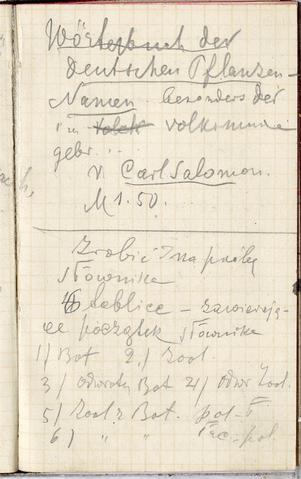 Wörterbuch der
deutschen Pflanzen-
Namen besonders der
im Volksmunde
gebr...
v. Carl Salomon.
M 1.50.
Zrobić 7 na próbę
słownika
6 tablice – zawierają-
ce początek słownika
1) Bot 2) Zool.
3) odwrotny Bot 4) odwr Zool.
5) Zool z Bot. pol-ł
6) " " łac-pol.